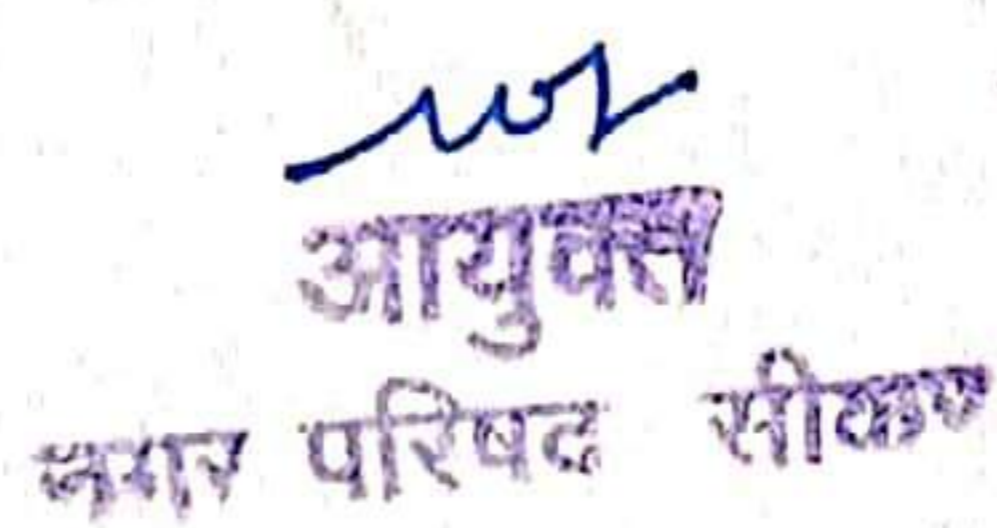 आयुक्त
नगर परिषद सीकर